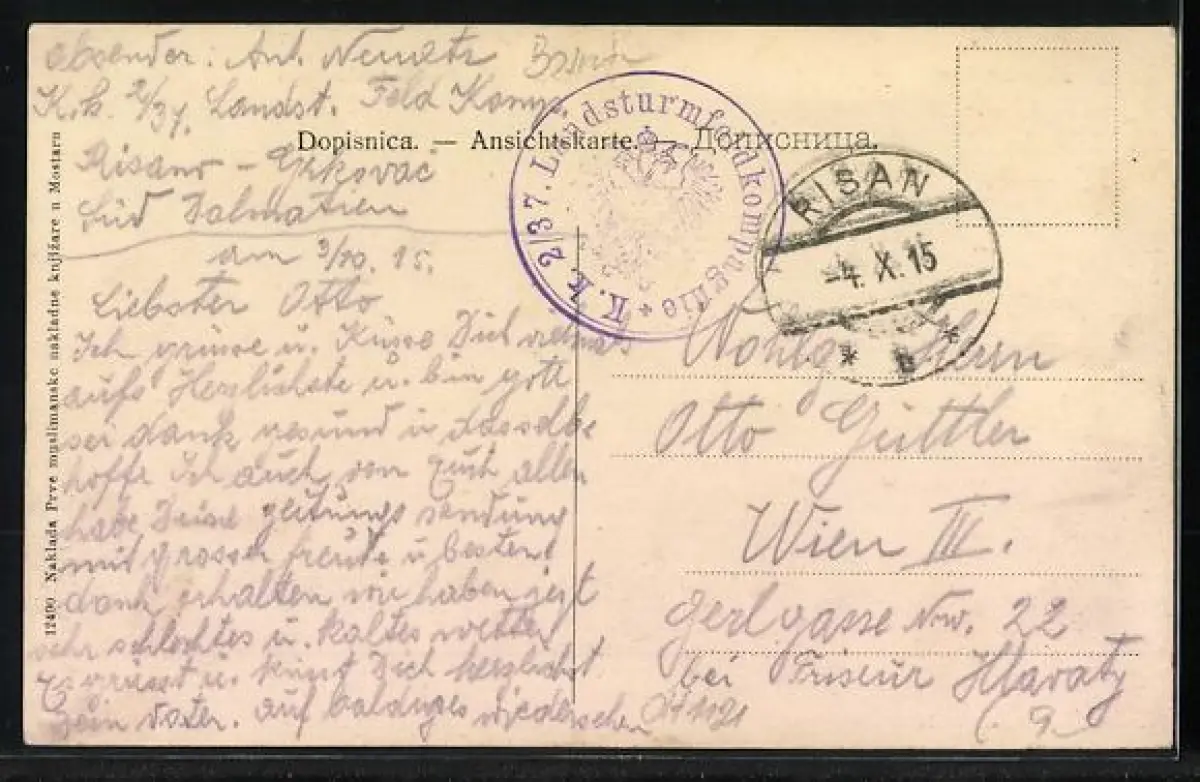 absender: Ant. Nemetz
K.k. 2/37. Landst. Feld Komp.
Risano –
Süd Dalmatien
am 3/10. 15.
Liebster Otto
Ich grüsse u. Küsse Dich
aufs Herzlichste u. bin gott
sei dank gesund u. dasselbe
hoffe ich auch von Euch allen
habe Deine zeitungs sendung
mit grosser freude u besten
dank erhalten wir haben jezt
sehr schlechtes u. kaltes wetter
Es grüsst u. küsst Dich herzlichst
Dein Vater. auf baldiges wiedersehen
Dopisnica. — Ansichtskarte. — Дописница.
K. k. 2/37. Landsturmfeldkompagnie *
RISAN
-4. X. 15
* b *
Herrn
Otto Güttler
Wien III.
Gerlgasse Nro. 22
bei Friseur Hlavaty
12400 Naklada Prve muslimanske nakladne knjižare u Mostaru